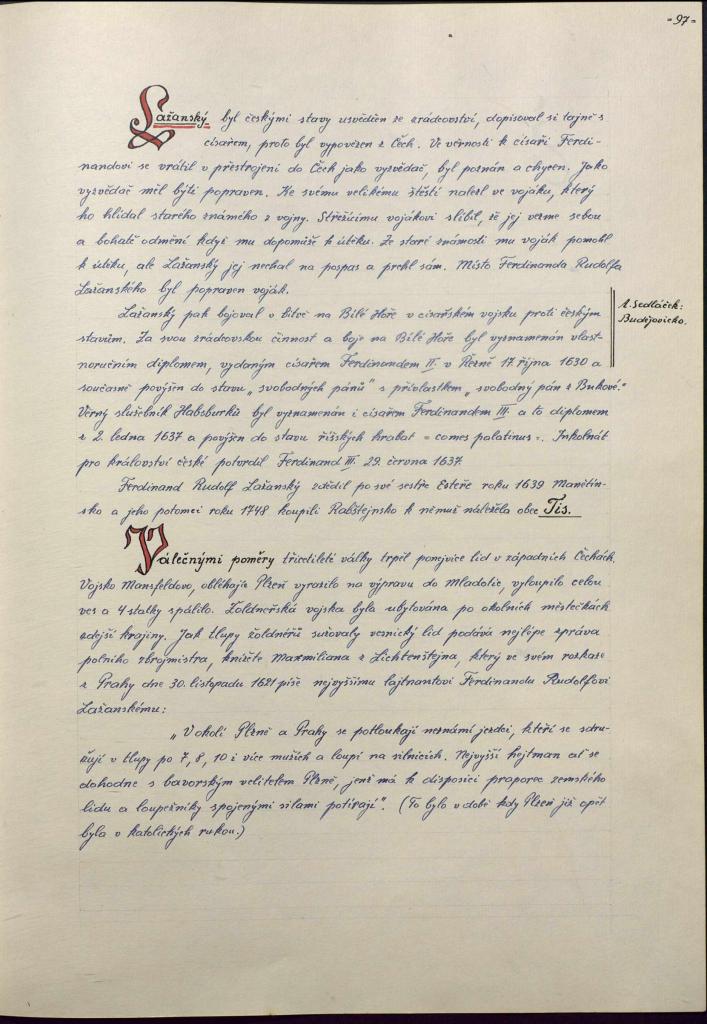 -97-
Lažanský byl českými stavy usvědčen ze zrádcovství, dopisoval si tajně s
císařem, proto byl vypovězen z Čech. Ve věrnosti k císaři Ferdi-
nandovi se vrátil v přestrojení do Čech jako vyzvědač, byl poznán a chycen. Jako
vyzvědač měl býti popraven. Ke svému velikému štěstí nalezl ve vojáku, který
ho hlídal starého známého z vojny. Střežícímu vojákovi slíbil, že jej vezme sebou
a bohatě odmění když mu dopomůže k útěku. Ze staré známosti mu voják pomohl
k útěku, ale Lažanský jej nechal na pospas a prchl sám. Místo Ferdinanda Rudolfa
Lažanského byl popraven voják.
Lažanský pak bojoval v bitvě na Bílé Hoře v císařském vojsku proti českým
stavům. Za svou zrádcovskou činnost a boje na Bílé Hoře byl vyznamenán vlast-
noručním diplomem, vydaným císařem Ferdinandem II. v Řezně 17. října 1630 a
současně povýšen do stavu „svobodných pánů" s přívlastkem „svobodný pán z Bukové."
Věrný služebník Habsburků byl vyznamenán i císařem Ferdinandem III. a to diplomem
z 2. ledna 1637 a povýšen do stavu říšských hrabat = comes palatinus =. Inkolát
pro království české potvrdil Ferdinand III. 29. června 1637.
A. Sedláček:
Budějovicko.
Ferdinand Rudolf Lažanský zdědil po své sestře Esteře roku 1639 Manětín-
sko a jeho potomci roku 1748 koupili Rabštejnsko k němuž náležela obec Tis.
Válečnými poměry třicetileté války trpěl ponejvíce lid v západních Čechách.
Vojsko Mansfeldovo, obléhajíc Plzeň vyrazilo na výpravu do Mladotic, vyloupilo celou
ves a 4 statky spálilo. Žoldnéřská vojska byla ubytována po okolních městečkách
zdejší krajiny. Jak tlupy žoldnéřů sužovaly vesnický lid podává nejlépe zpráva
polního zbrojmistra, knížete Maxmiliana z Lichtenštejna, který ve svém rozkaze
z Prahy dne 30. listopadu 1621 píše nejvyššímu lajtnantovi Ferdinandu Rudolfovi
Lažanskému:
„V okolí Plzně a Prahy se potloukají neznámí jezdci, kteří se sdru-
žují v tlupy po 7, 8, 10 i více mužích a loupí na silnicích. Nejvyšší hejtman ať se
dohodne s bavorským velitelem Plzně, jenž má k disposici praporec zemského
lidu a loupežníky spojenými silami potírají". (To bylo v době kdy Plzeň již opět
byla v katolických rukou.)